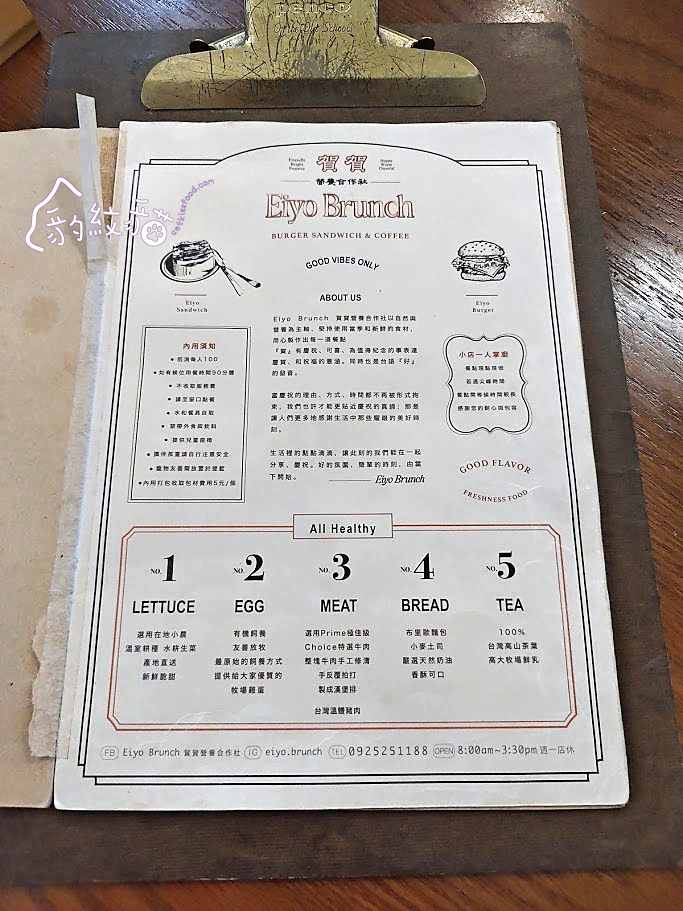 penco
Old School
賀賀
Friendly
Bright
Positive
Happy
Warm
Cheerful
營養合作社
Eiyo Brunch
BURGER SANDWICH & COFFEE
GOOD VIBES ONLY
豹紋
catkissfood.com
Eiyo
Sandwich
Eiyo
Burger
ABOUT US
Eiyo Brunch 賀賀營養合作社以自然與
營養為主軸、堅持使用當季和新鮮的食材,
用心製作出每一道餐點
『賀』有慶祝、可喜、為值得紀念的事表達
慶賀、和祝福的意涵。同時也是台語『好』
的發音。
當慶祝的理由、方式、時間都不再被形式拘
束,我們也許才能更貼近慶祝的真諦:那是
讓人們更多地感謝生活中那些耀眼的美好時
刻。
生活裡的點點滴滴,讓此刻的我們能在一起
分享、慶祝。好的氛圍,簡單的時刻,由當
下開始。
Eiyo Brunch
內用須知
• 低消每人100
• 如有候位用餐時間90分鐘
• 不收取服務費
• 請至窗口點餐
• 水和餐具自取
• 禁帶外食與飲料
• 提供兒童座椅
• 攜伴孩童請自行注意安全
• 寵物友善需放置於提籃
• 內用打包收取包材費用5元/個
小店一人掌廚
餐點現點現做
若遇尖峰時間
餐點需等候時間較長
感謝您的耐心與包容
GOOD FLAVOR
FRESHNESS FOOD
All Healthy
NO.1
LETTUCE
選用在地小農
溫室耕種 水耕生菜
產地直送
新鮮脆甜
NO.2
EGG
有機飼養
友善放牧
最原始的飼養方式
提供給大家優質的
牧場雞蛋
NO.3
MEAT
選用Prime極佳級
Choice特選牛肉
整塊牛肉手工修清
手反覆拍打
製成漢堡排
台灣溫體豬肉
NO.4
BREAD
布里歐麵包
小麥土司
嚴選天然奶油
香酥可口
NO.5
TEA
100%
台灣高山茶葉
高大牧場鮮乳
FB Eiyo Brunch 賀賀營養合作社 IG eiyo.brunch TEL 0925251188 OPEN 8:00am~3:30pm 週一店休